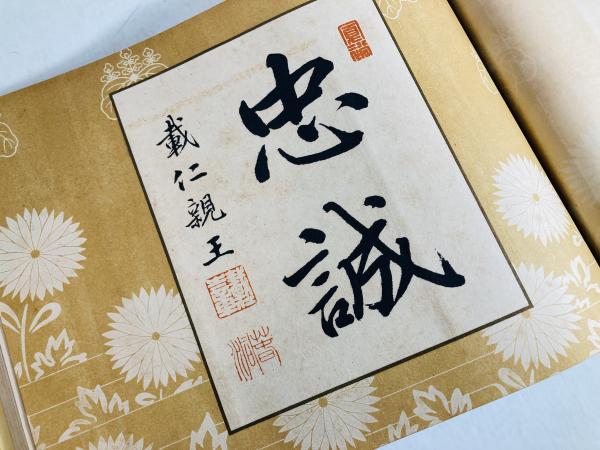 忠誠
載仁親王